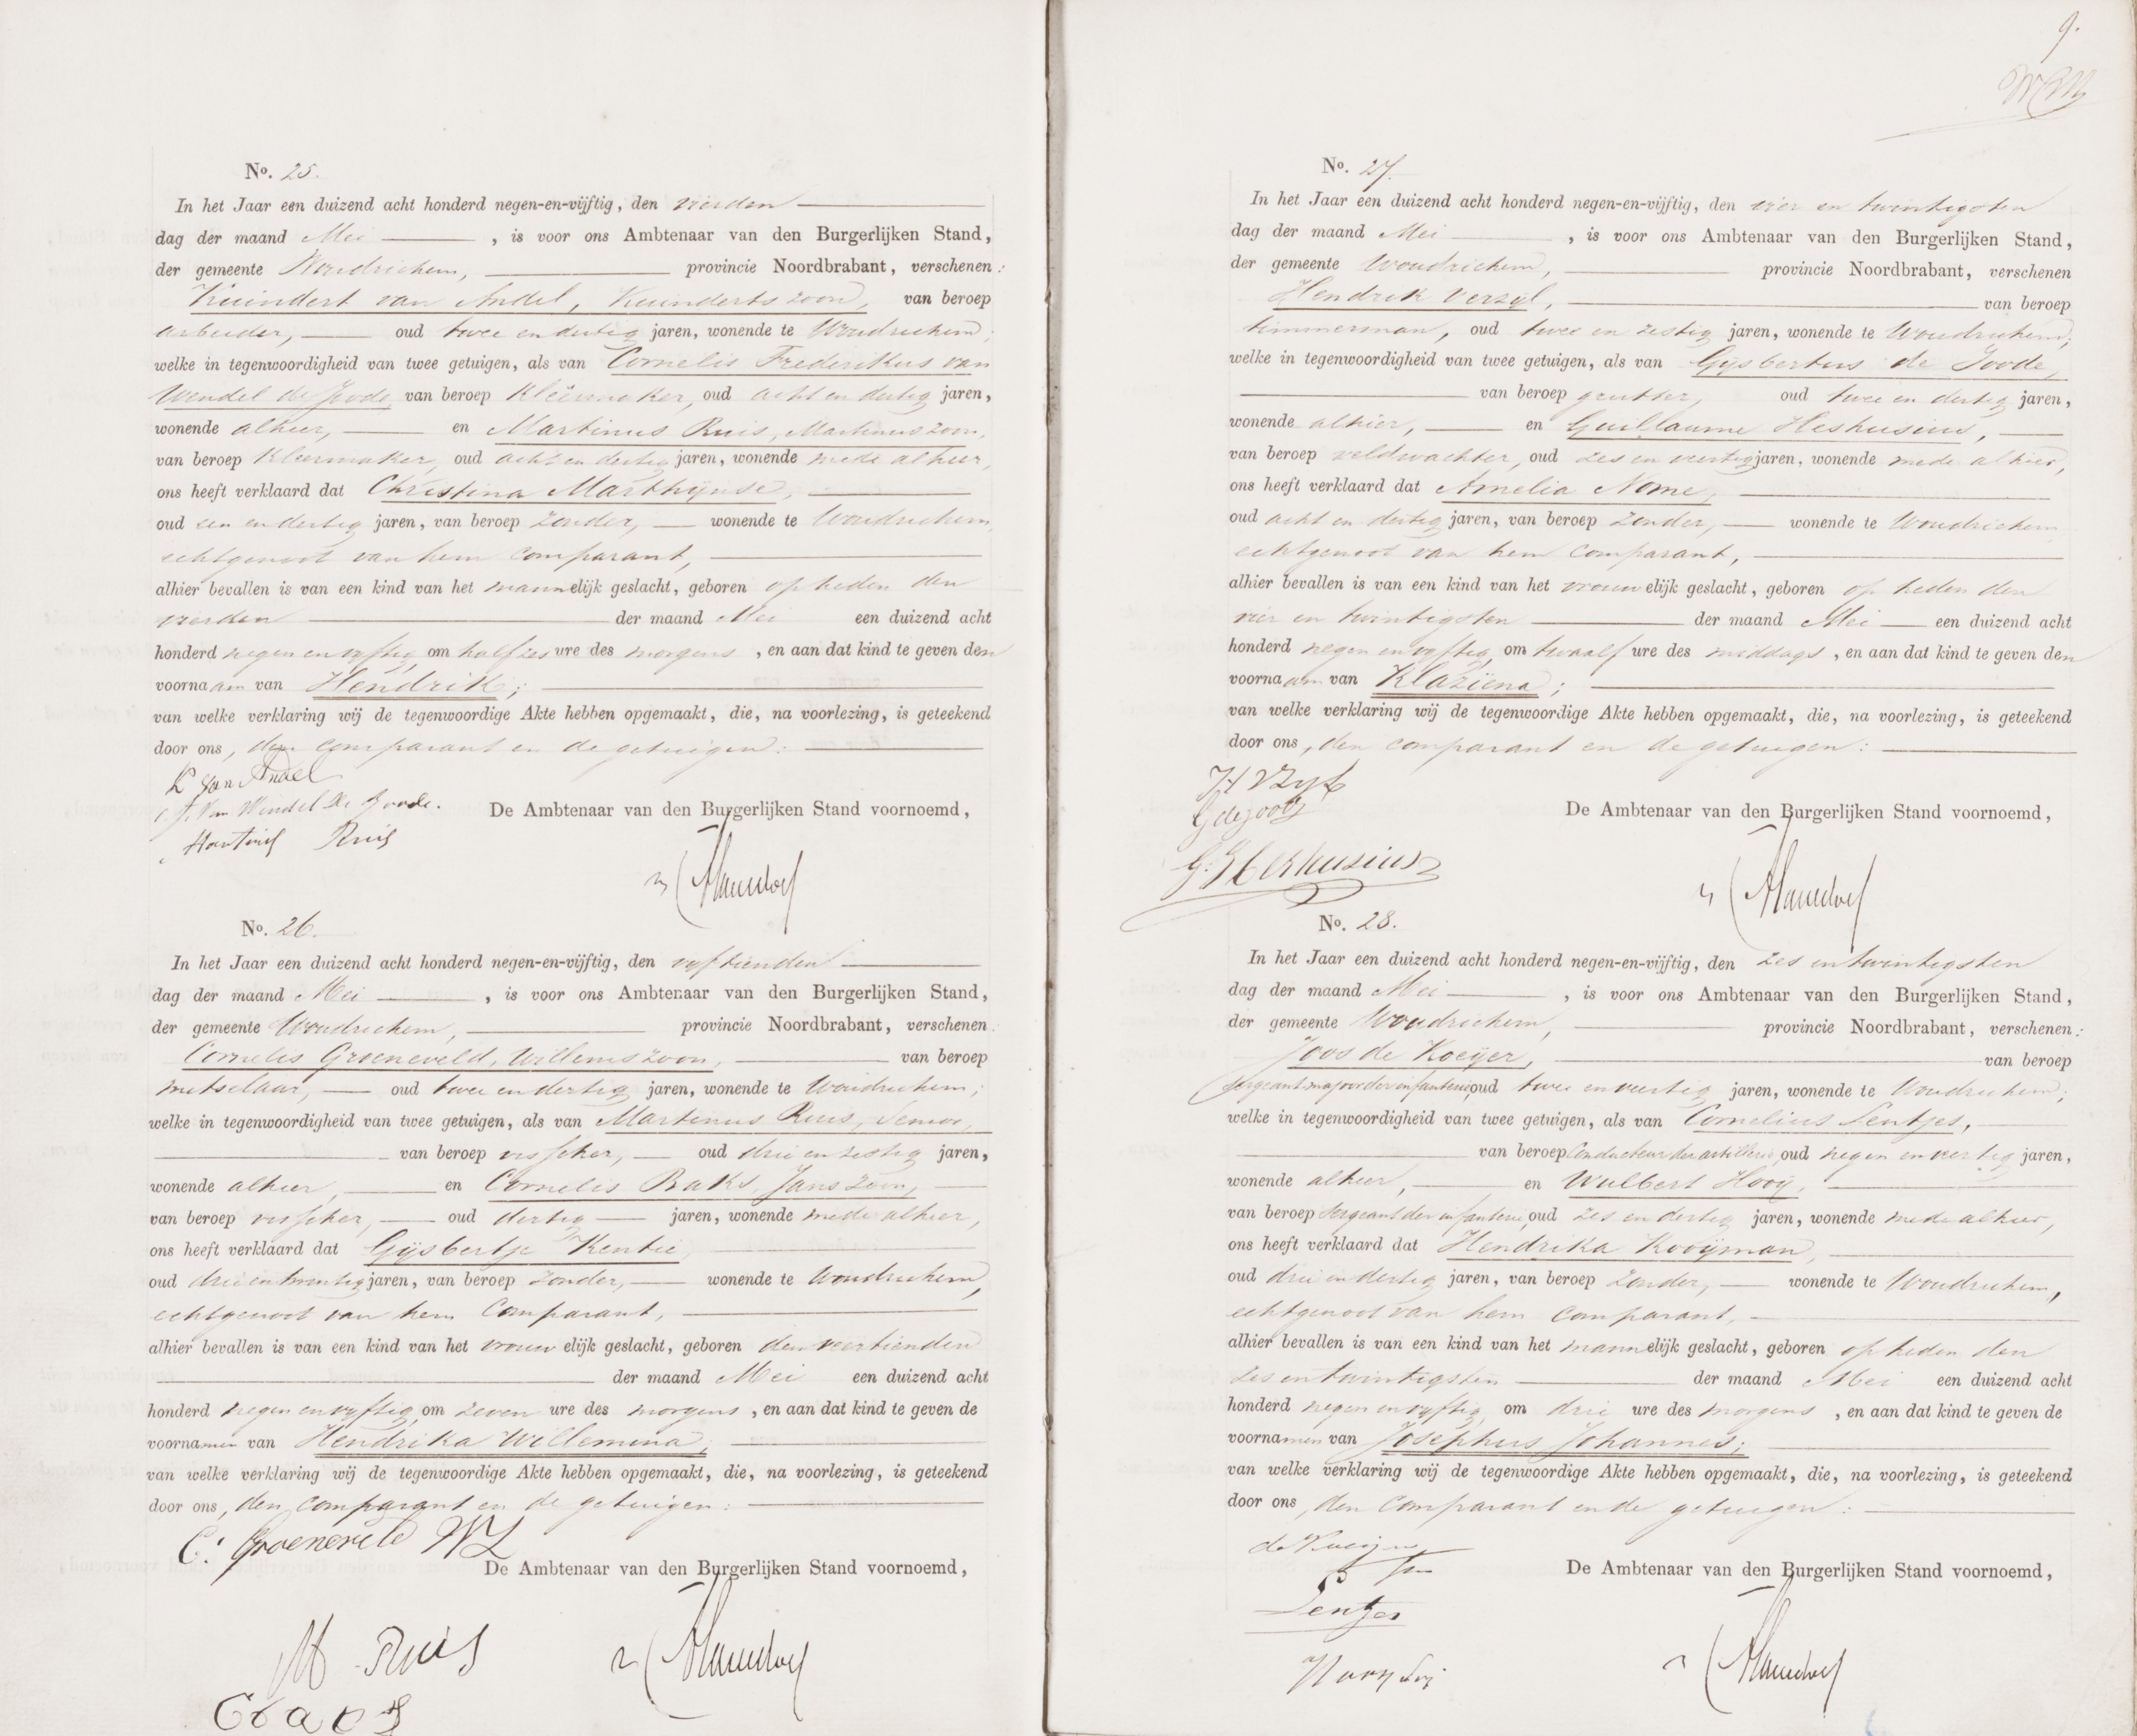 No. 25.
In het Jaar een duizend acht honderd negen-en-vijftig, den vierden
dag der maand Mei , is voor ons Ambtenaar van den Burgerlijken Stand,
der gemeente Woudrichem, provincie Noordbrabant, verschenen:
Kuindert van Andel, Kuinderts zoon, van beroep
arbeider, oud twee en dertig jaren, wonende te Woudrichem;
welke in tegenwoordigheid van twee getuigen, als van Cornelis Frederikus van
Wendel de Joode, van beroep Kleêrmaker, oud acht en dertig jaren,
wonende alhier, en Martinus Ruis, Martinus zoon,
van beroep Kleermaker, oud acht en dertig jaren, wonende mede alhier,
ons heeft verklaard dat Christina Marthijnse,
oud een en dertig jaren, van beroep zonder, wonende te Woudrichem,
echtgenoot van hem comparant,
alhier bevallen is van een kind van het mannelijk geslacht, geboren op heden den
vierden der maand Mei een duizend acht
honderd negen en vyftig om half zes ure des morgens, en aan dat kind te geven den
voornaam van Hendrik;
van welke verklaring wij de tegenwoordige Akte hebben opgemaakt, die, na voorlezing, is geteekend
door ons, den comparant en de getuigen:
K van Andel
C f. Van Wendel De Joode.
Martinis Ruis
De Ambtenaar van den Burgerlijken Stand voornoemd,
No. 26.
In het Jaar een duizend acht honderd negen-en-vijftig, den vyftienden
dag der maand Mei , is voor ons Ambtenaar van den Burgerlijken Stand,
der gemeente Woudrichem, provincie Noordbrabant, verschenen:
Cornelis Groeneveld, Willems zoon, van beroep
metselaar, oud twee en dertig jaren, wonende te Woudrichem;
welke in tegenwoordigheid van twee getuigen, als van Martinus Ruis, Senior,
van beroep visscher, oud drie en zestig jaren,
wonende alhier, en Cornelis Baks, Jans zoon,
van beroep visscher, oud dertig jaren, wonende mede alhier,
ons heeft verklaard dat Gijsbertje Kentie,
oud drie en twintig jaren, van beroep zonder, wonende te Woudrichem,
echtgenoot van hem Comparant,
alhier bevallen is van een kind van het vrouwelijk geslacht, geboren den veertienden
der maand Mei een duizend acht
honderd negen en vyftig om zeven ure des morgens, en aan dat kind te geven de
voornamen van Hendrika Willemina;
van welke verklaring wij de tegenwoordige Akte hebben opgemaakt, die, na voorlezing, is geteekend
door ons, den comparant en de getuigen:
C. Groeneveld WZ
De Ambtenaar van den Burgerlijken Stand voornoemd,
M Ruis
9.
No. 27.
In het Jaar een duizend acht honderd negen-en-vijftig, den vier en twintigsten
dag der maand Mei , is voor ons Ambtenaar van den Burgerlijken Stand,
der gemeente Woudrichem, provincie Noordbrabant, verschenen
Hendrik Verzijl, van beroep
timmerman, oud twee en zestig jaren, wonende te Woudrichem;
welke in tegenwoordigheid van twee getuigen, als van Gijsbertus de Joode,
van beroep grutter, oud twee en dertig jaren,
wonende alhier, en Guillaume Heshusius,
van beroep veldwachter, oud zes en veertig jaren, wonende mede alhier,
ons heeft verklaard dat Amelia Nome,
oud acht en dertig jaren, van beroep zonder, wonende te Woudrichem
echtgenoot van hem comparant,
alhier bevallen is van een kind van het vrouwelijk geslacht, geboren op heden den
vier en twintigsten der maand Mei een duizend acht
honderd negen en vyftig om twaalf ure des middags, en aan dat kind te geven den
voornaam van Klaziena;
van welke verklaring wij de tegenwoordige Akte hebben opgemaakt, die, na voorlezing, is geteekend
door ons, den comparant en de getuigen:
G de Joode
G. Heshusius
De Ambtenaar van den Burgerlijken Stand voornoemd,
No. 28.
In het Jaar een duizend acht honderd negen-en-vijftig, den zes en twintigsten
dag der maand Mei , is voor ons Ambtenaar van den Burgerlijken Stand,
der gemeente Woudrichem, provincie Noordbrabant, verschenen:
Joos de Koeijer, van beroep
sergeant majoor der infanterie, oud twee en veertig jaren, wonende te Woudrichem;
welke in tegenwoordigheid van twee getuigen, als van Cornelius Lentjes,
van beroep Conducteur der artillerie, oud negen en veertig jaren,
wonende alhier, en Wulbert Hooij,
van beroep Sergeant der infanterie, oud zes en dertig jaren, wonende mede alhier,
ons heeft verklaard dat Hendrika Kooijman,
oud drie en dertig jaren, van beroep zonder, wonende te Woudrichem,
echtgenoot van hem comparant,
alhier bevallen is van een kind van het mannelijk geslacht, geboren op heden den
zes en twintigsten der maand Mei een duizend acht
honderd negen en vyftig om drie ure des morgens, en aan dat kind te geven de
voornamen van Josephus Johannes;
van welke verklaring wij de tegenwoordige Akte hebben opgemaakt, die, na voorlezing, is geteekend
door ons, den Comparant en de getuigen:
Lentjes
De Ambtenaar van den Burgerlijken Stand voornoemd,